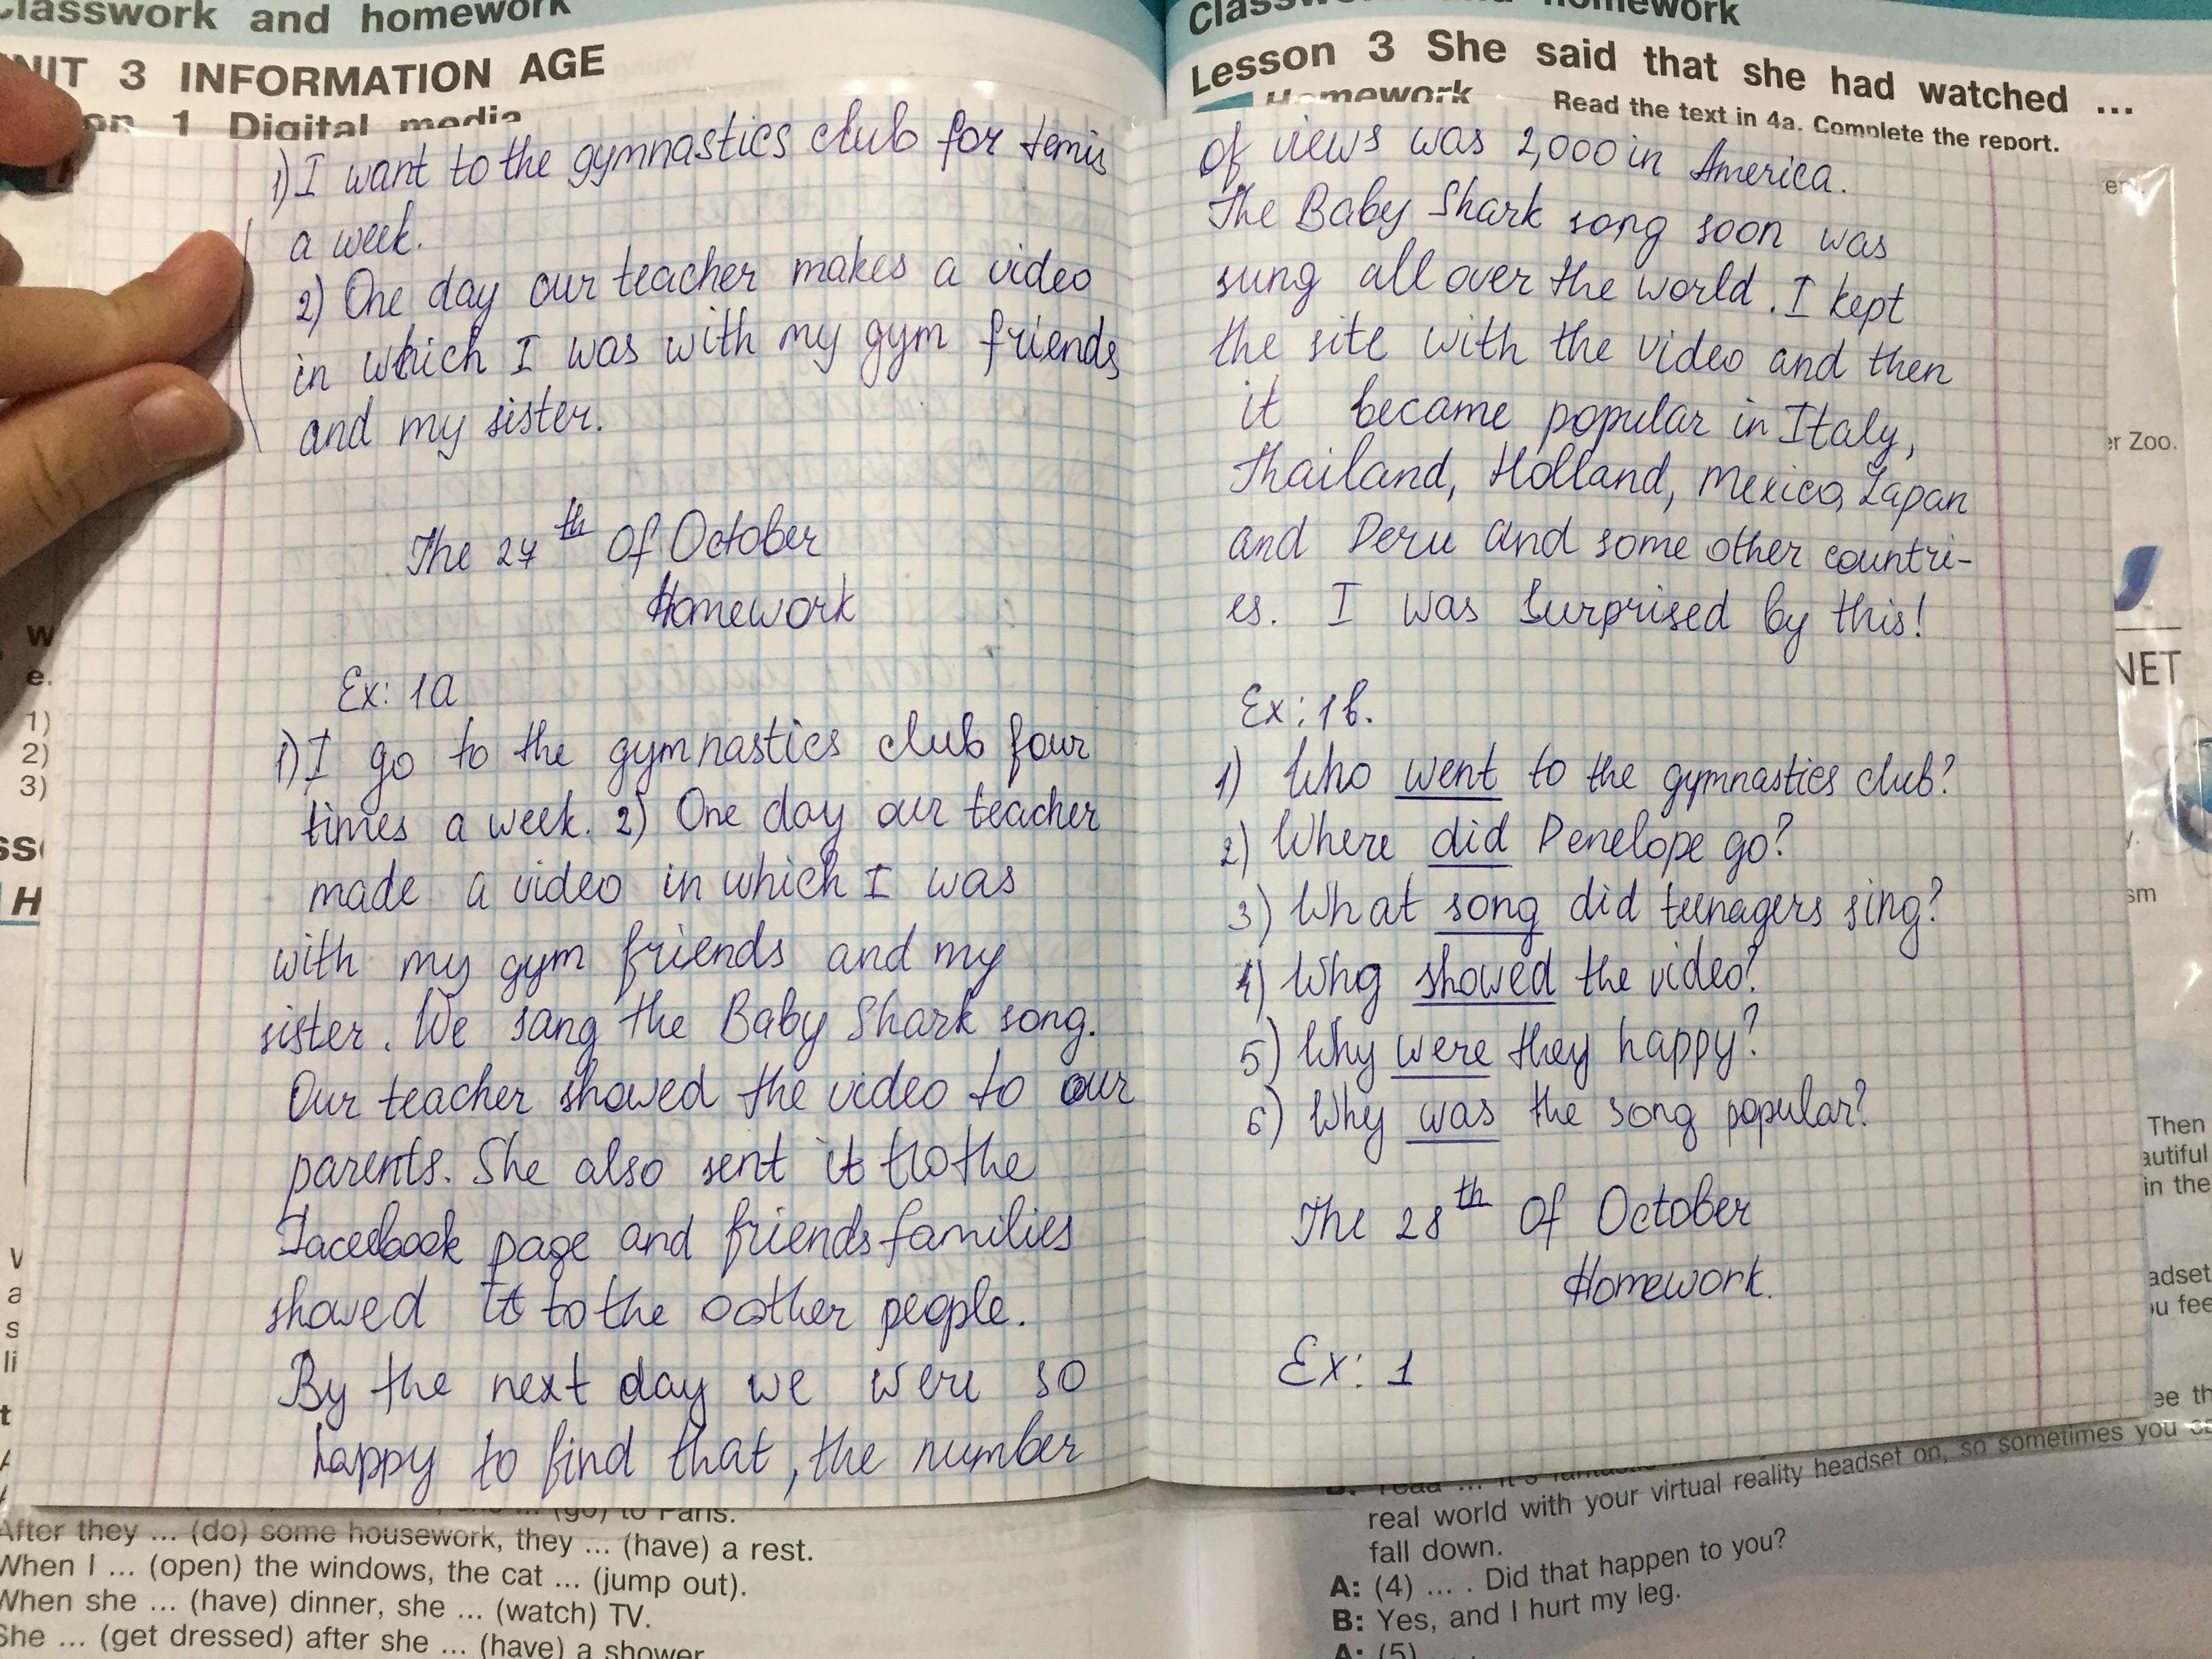 Classwork and homework
UNIT 3 INFORMATION AGE
on 1 Digital media
1) I want to the gymnastics club for temis
a week.
2) One day our teacher makes a video
in which I was with my gym friends
and my sister.
The 27th Of October
Homework
Ex: 1a
1) I go to the gymnastics club four
times a week. 2) One day our teacher
made a video in which I was
with my gym friends and my
sister. We sang the Baby Shark song.
Our teacher showed the video to our
parents. She also sent it to the
Facebook page and friends families
showed it to the oother people.
By the next day we were so
happy to find that, the number
W
e.
1)
2)
3)
H
After they ... (do) some housework, they ... (have) a rest.
When I ... (open) the windows, the cat ... (jump out).
When she ... (have) dinner, she ... (watch) TV.
She ... (get dressed) after she ... (have) a shower
Classwork and homework
Lesson 3 She said that she had watched ...
Homework Read the text in 4a. Complete the report.
of views was 2,000 in America.
The Baby Shark song soon was
sung all over the world. I kept
the site with the video and then
it became popular in Italy,
Thailand, Holland, Mexico, Japan
and Peru and some other countri-
es. I was surprised by this!
Ex: 1b.
1) Who went to the gymnastics club?
2) Where did Penelope go?
3) What song did teenagers sing?
4) Who showed the video?
5) Why were they happy?
6) Why was the song popular?
The 28th Of October
Homework.
Ex: 1
er Zoo.
NET
sm
Then
autiful
in the
adset
ou fee
ee th
real world with your virtual reality headset on, so sometimes you ca
fall down.
A: (4) ... . Did that happen to you?
B: Yes, and I hurt my leg.
A: (5)